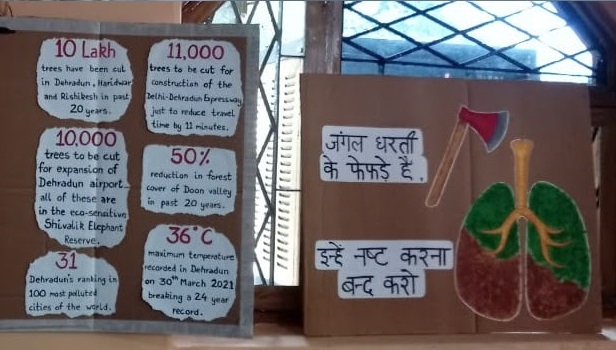 10 Lakh
trees have been cut
in Dehradun, Haridwar
and Rishikesh in past
20 years.
11,000
trees to be cut for
construction of the
Delhi-Dehradun Expressway
just to reduce travel
time by 11 minutes.
10,000
trees to be cut
for expansion of
Dehradun airport
all of these are
in the eco-sensitive
Shivalik Elephant
Reserve.
50%
reduction in forest
cover of Doon valley
in past 20 years.
31
Dehradun's ranking in
100 most polluted
cities of the world.
36°C
maximum temperature
recorded in Dehradun
on 30th March 2021
breaking a 24 year
record.
जंगल धरती
के फेफड़े है.
इन्हें नष्ट करना
बन्द करो